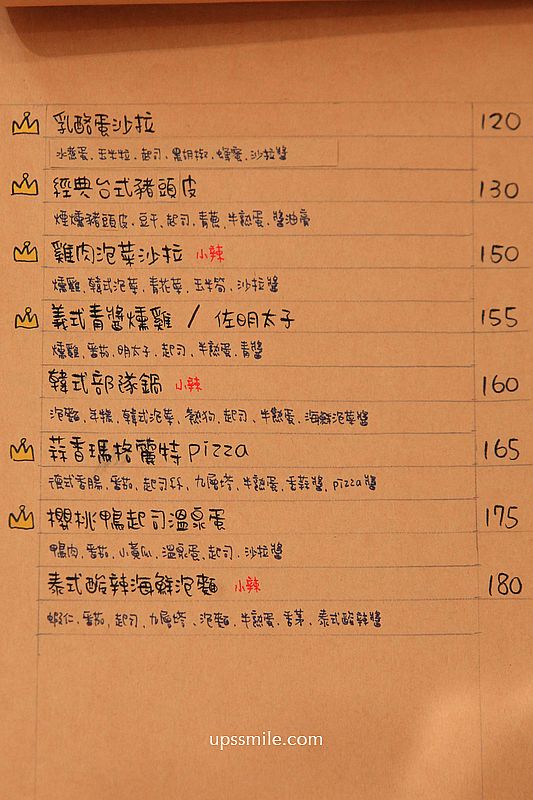 乳酪蛋沙拉 120
水煮蛋.玉米粒.起司.黑胡椒.蜂蜜.沙拉醬
經典台式豬頭皮 130
煙燻豬頭皮.豆干.起司.青蔥.半熟蛋.醬油膏
雞肉泡菜沙拉 小辣 150
燻雞.韓式泡菜.青花菜.玉米筍.沙拉醬
義式青醬燻雞 / 佐明太子 155
燻雞.番茄.明太子.起司.半熟蛋.青醬
韓式部隊鍋 小辣 160
泡麵.年糕.韓式泡菜.熱狗.起司.半熟蛋.海鮮泡菜醬
蒜香瑪格麗特pizza 165
德式香腸.番茄.起司絲.九層塔.半熟蛋.香蒜醬.pizza醬
櫻桃鴨起司溫泉蛋 175
鴨肉.番茄.小黃瓜.溫泉蛋.起司.沙拉醬
泰式酸辣海鮮泡麵 小辣 180
蝦仁.番茄.起司.九層塔.泡麵.半熟蛋.香茅.泰式酸辣醬
upssmile.com